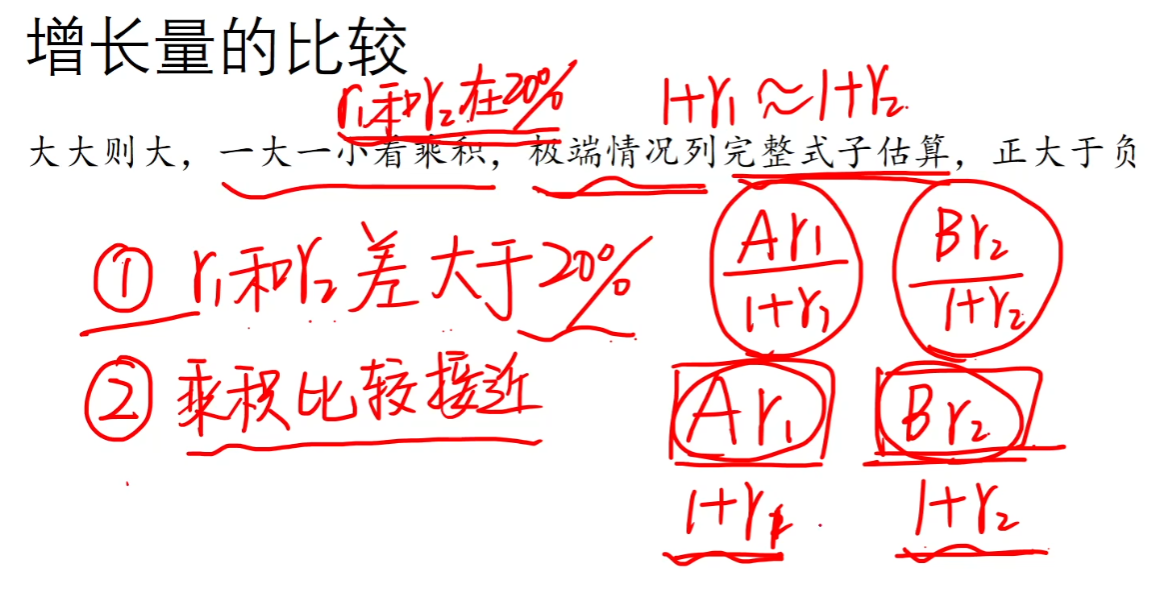 增长量的比较
r₁和r₂在20% 1+r₁≈1+r₂
大大则大，一大一小看乘积，极端情况列完整式子估算，正大于负
① r₁和r₂差大于20%
Ar₁/1+r₁ Br₂/1+r₂
② 乘积比较接近
Ar₁ Br₂
1+r₁ 1+r₂